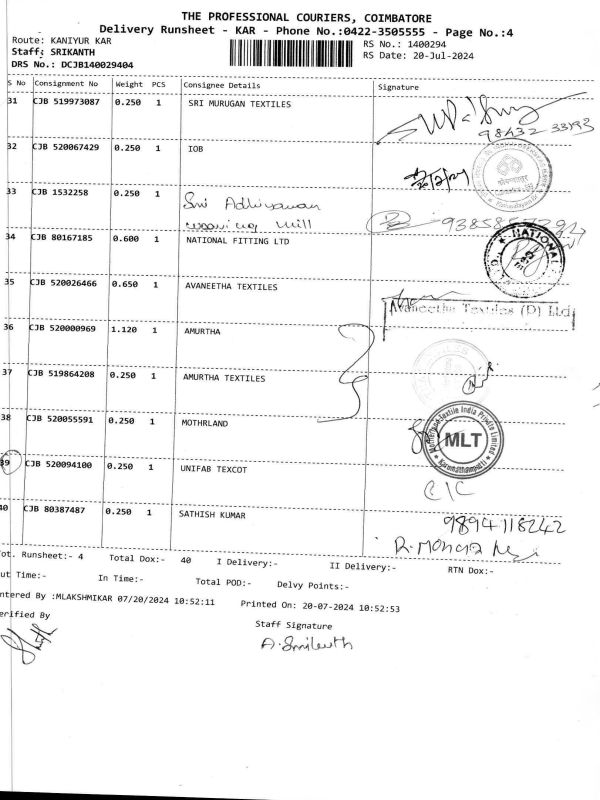 THE PROFESSIONAL COURIERS, COIMBATORE
Delivery Runsheet - KAR - Phone No.:0422-3505555 - Page No.:4
Route: KANIYUR KAR RS No.: 1400294
Staff: SRIKANTH RS Date: 20-Jul-2024
DRS No.: DCJB140029404
S No Consignment No Weight PCS Consignee Details Signature
31 CJB 519973087 0.250 1 SRI MURUGAN TEXTILES
98432 33193
32 CJB 520067429 0.250 1 IOB
33 CJB 1532258 0.250 1 Sri Adhiyaman
weaving mill
34 CJB 80167185 0.600 1 NATIONAL FITTING LTD
NATIONAL
35 CJB 520026466 0.650 1 AVANEETHA TEXTILES
Avaneetha Textiles (P) Ltd
36 CJB 520000969 1.120 1 AMURTHA
37 CJB 519864208 0.250 1 AMURTHA TEXTILES
38 CJB 520055591 0.250 1 MOTHRLAND
Motherland Textile India Private Limited
MLT
Karumathampatti
39 CJB 520094100 0.250 1 UNIFAB TEXCOT
C/C
40 CJB 80387487 0.250 1 SATHISH KUMAR
9894118242
ot. Runsheet:- 4 Total Dox:- 40 I Delivery:- II Delivery:- RTN Dox:-
ut Time:- In Time:- Total POD:- Delvy Points:-
ntered By :MLAKSHMIKAR 07/20/2024 10:52:11 Printed On: 20-07-2024 10:52:53
erified By Staff Signature